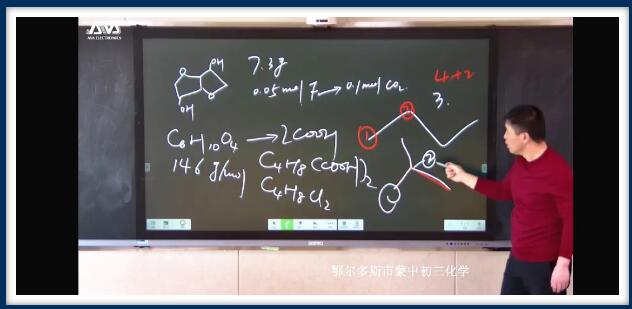 AVA
AVA ELECTRONICS
OH
O
O
OH
7.3g
0.05mol F → 0.1mol CO2
4+2
3.
①
②
C6H10O4 → 2COOH
146 g/mol
C4H8(COOH)2
C4H8Cl2
②
鄂尔多斯市蒙中初三化学